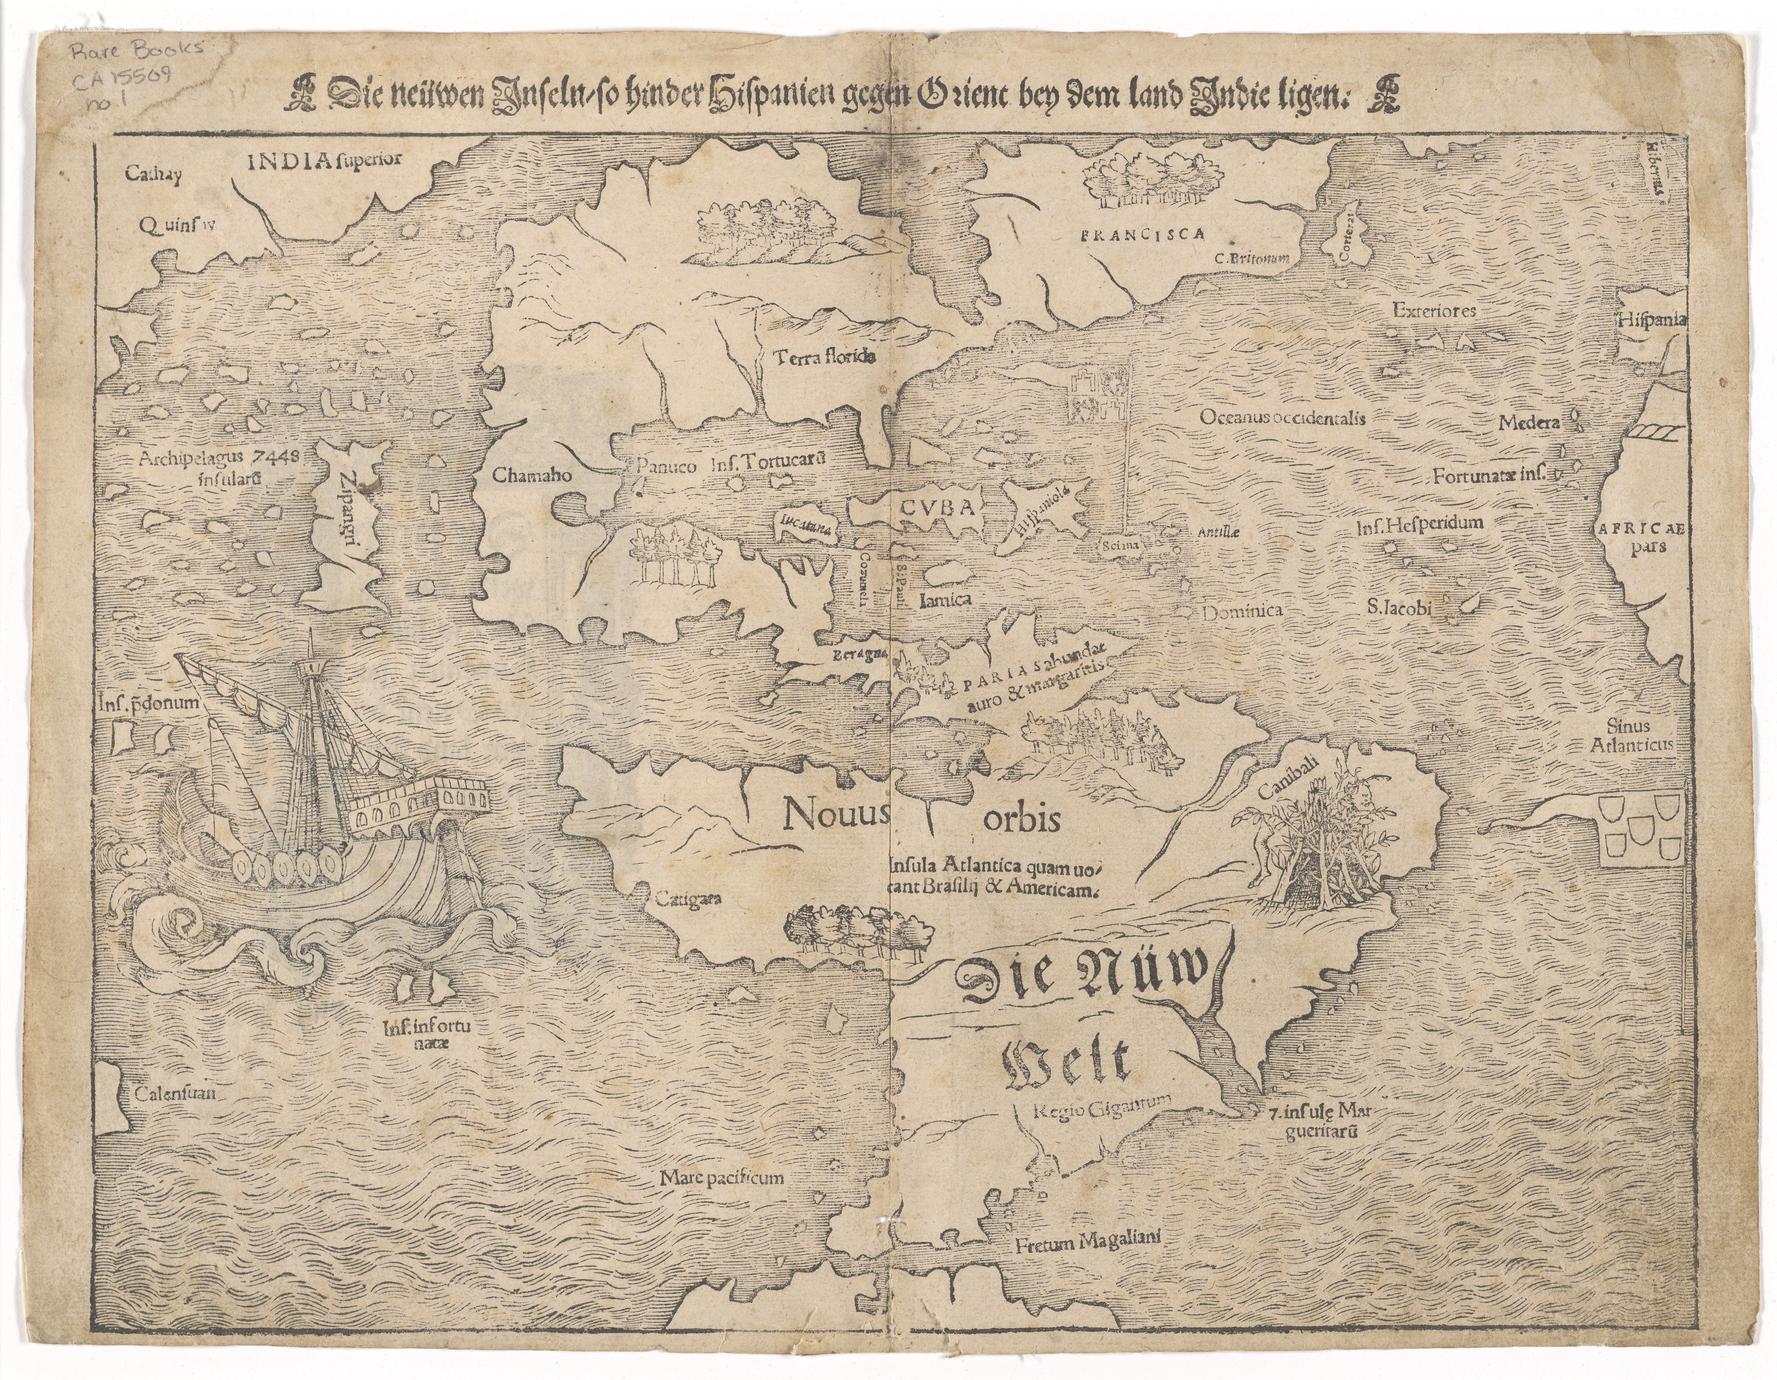 Rare Books
CA 15509
no 1
Die neüwen Inseln / so hinder Hispanien gegen Orient bey dem land Indie ligen.
Cathay
INDIA superior
Quinsay
Hibernia
FRANCISCA
C. Britonum
Corterat
Exteriores
Hispania
Terra florida
Oceanus occidentalis
Medera
Archipelagus 7448
insularū
Zipangri
Chamaho
Panuco
Ins. Tortucarū
Fortunatæ ins.
Iucatana
CVBA
Hispaniola
Antillæ
Ins. Hesperidum
AFRICAE
pars
Cozumela
S. Pauli
Iamica
Dominica
S. Iacobi
Beragna
PARIAS abundat
auro & margaritis
Ins. p̄donum
Sinus
Atlanticus
Canibali
Nouus orbis
Insula Atlantica quam uo/
cant Brasilij & Americam.
Catigara
Die Nüw
Welt
Ins. infortu
natæ
Calensuan
Regio Gigantum
7. insulę Mar
gueritarū
Mare pacificum
Fretum Magaliani